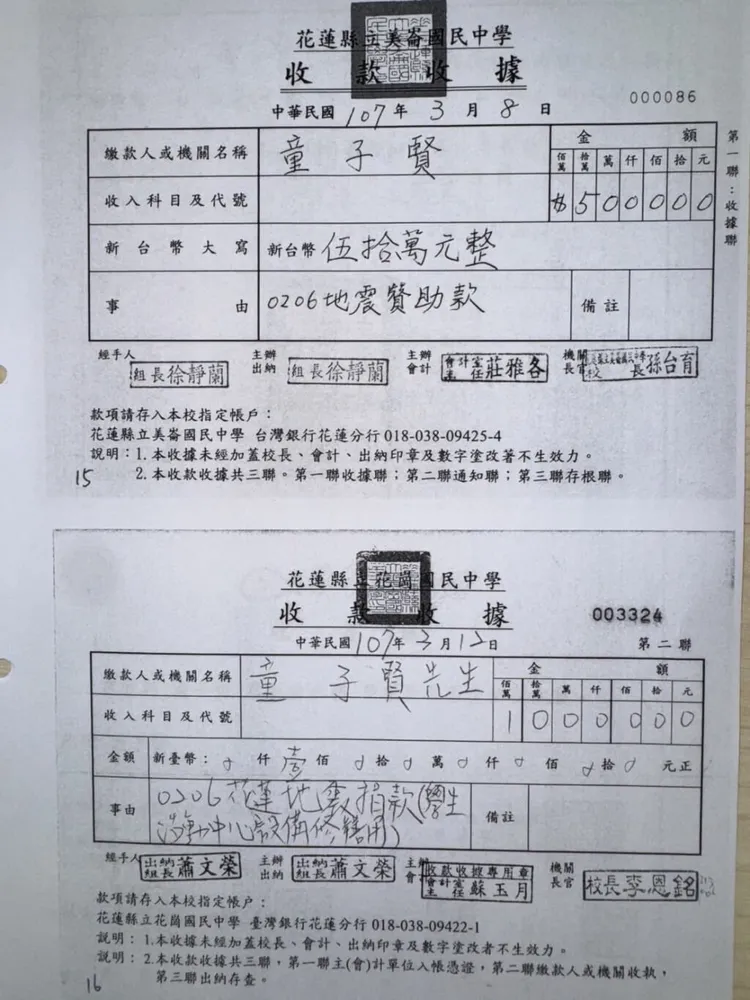 花蓮縣立美崙國民中學
收款收據
000086
中華民國 107 年 3 月 8 日
第一聯：收據聯
繳款人或機關名稱 童子賢 金額
佰萬 拾萬 萬 仟 佰 拾 元
收入科目及代號 $ 5 0 0 0 0 0
新台幣大寫 新台幣 伍拾萬元整
事由 0206地震贊助款 備註
經手人 組長徐靜蘭 主辦出納 組長徐靜蘭 主辦會計 會計室主任莊雅各 機關長官 校長孫台育
款項請存入本校指定帳戶：
花蓮縣立美崙國民中學 台灣銀行花蓮分行 018-038-09425-4
說明：1.本收據未經加蓋校長、會計、出納印章及數字塗改著不生效力。
2.本收款收據共三聯。第一聯收據聯；第二聯通知聯；第三聯存根聯。
15
花蓮縣立花崗國民中學
收款收據
003324
中華民國 107 年 3 月 12 日
第二聯
繳款人或機關名稱 童子賢先生 金額
佰萬 拾萬 萬 仟 佰 拾 元
收入科目及代號 1 0 0 0 0 0 0
金額 新臺幣： 0 仟 壹 佰 0 拾 0 萬 0 仟 0 佰 0 拾 0 元正
事由 0206花蓮地震捐款(學生
活動中心設備修繕用) 備註
經手人 出納組長蕭文榮 主辦出納 出納組長蕭文榮 主辦會計 收款收據專用章 會計室主任蘇玉月 機關長官 校長李恩銘
款項請存入本校指定帳戶：
花蓮縣立花崗國民中學 臺灣銀行花蓮分行 018-038-09422-1
說明：1.本收據未經加蓋校長、會計、出納印章及數字塗改者不生效力。
說明：2.本收款收據共三聯，第一聯主(會)計單位入帳憑證，第二聯繳款人或機關收執，
第三聯出納存查。
16